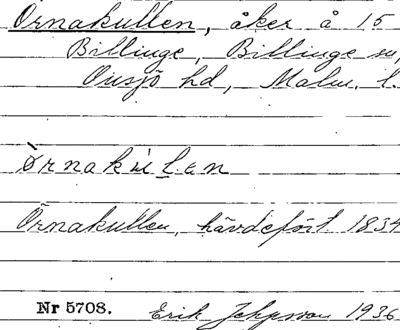 Örnakullen, åker å 15
Billinge, Billinge sn,
Onsjö hd, Malm. l.
Örnakullen, hävdefört 1834
Nr 5708. Erik 1936